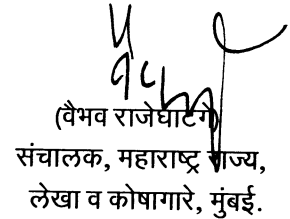 (वैभव राजेघाटगे)
संचालक, महाराष्ट्र राज्य,
लेखा व कोषागारे, मुंबई.